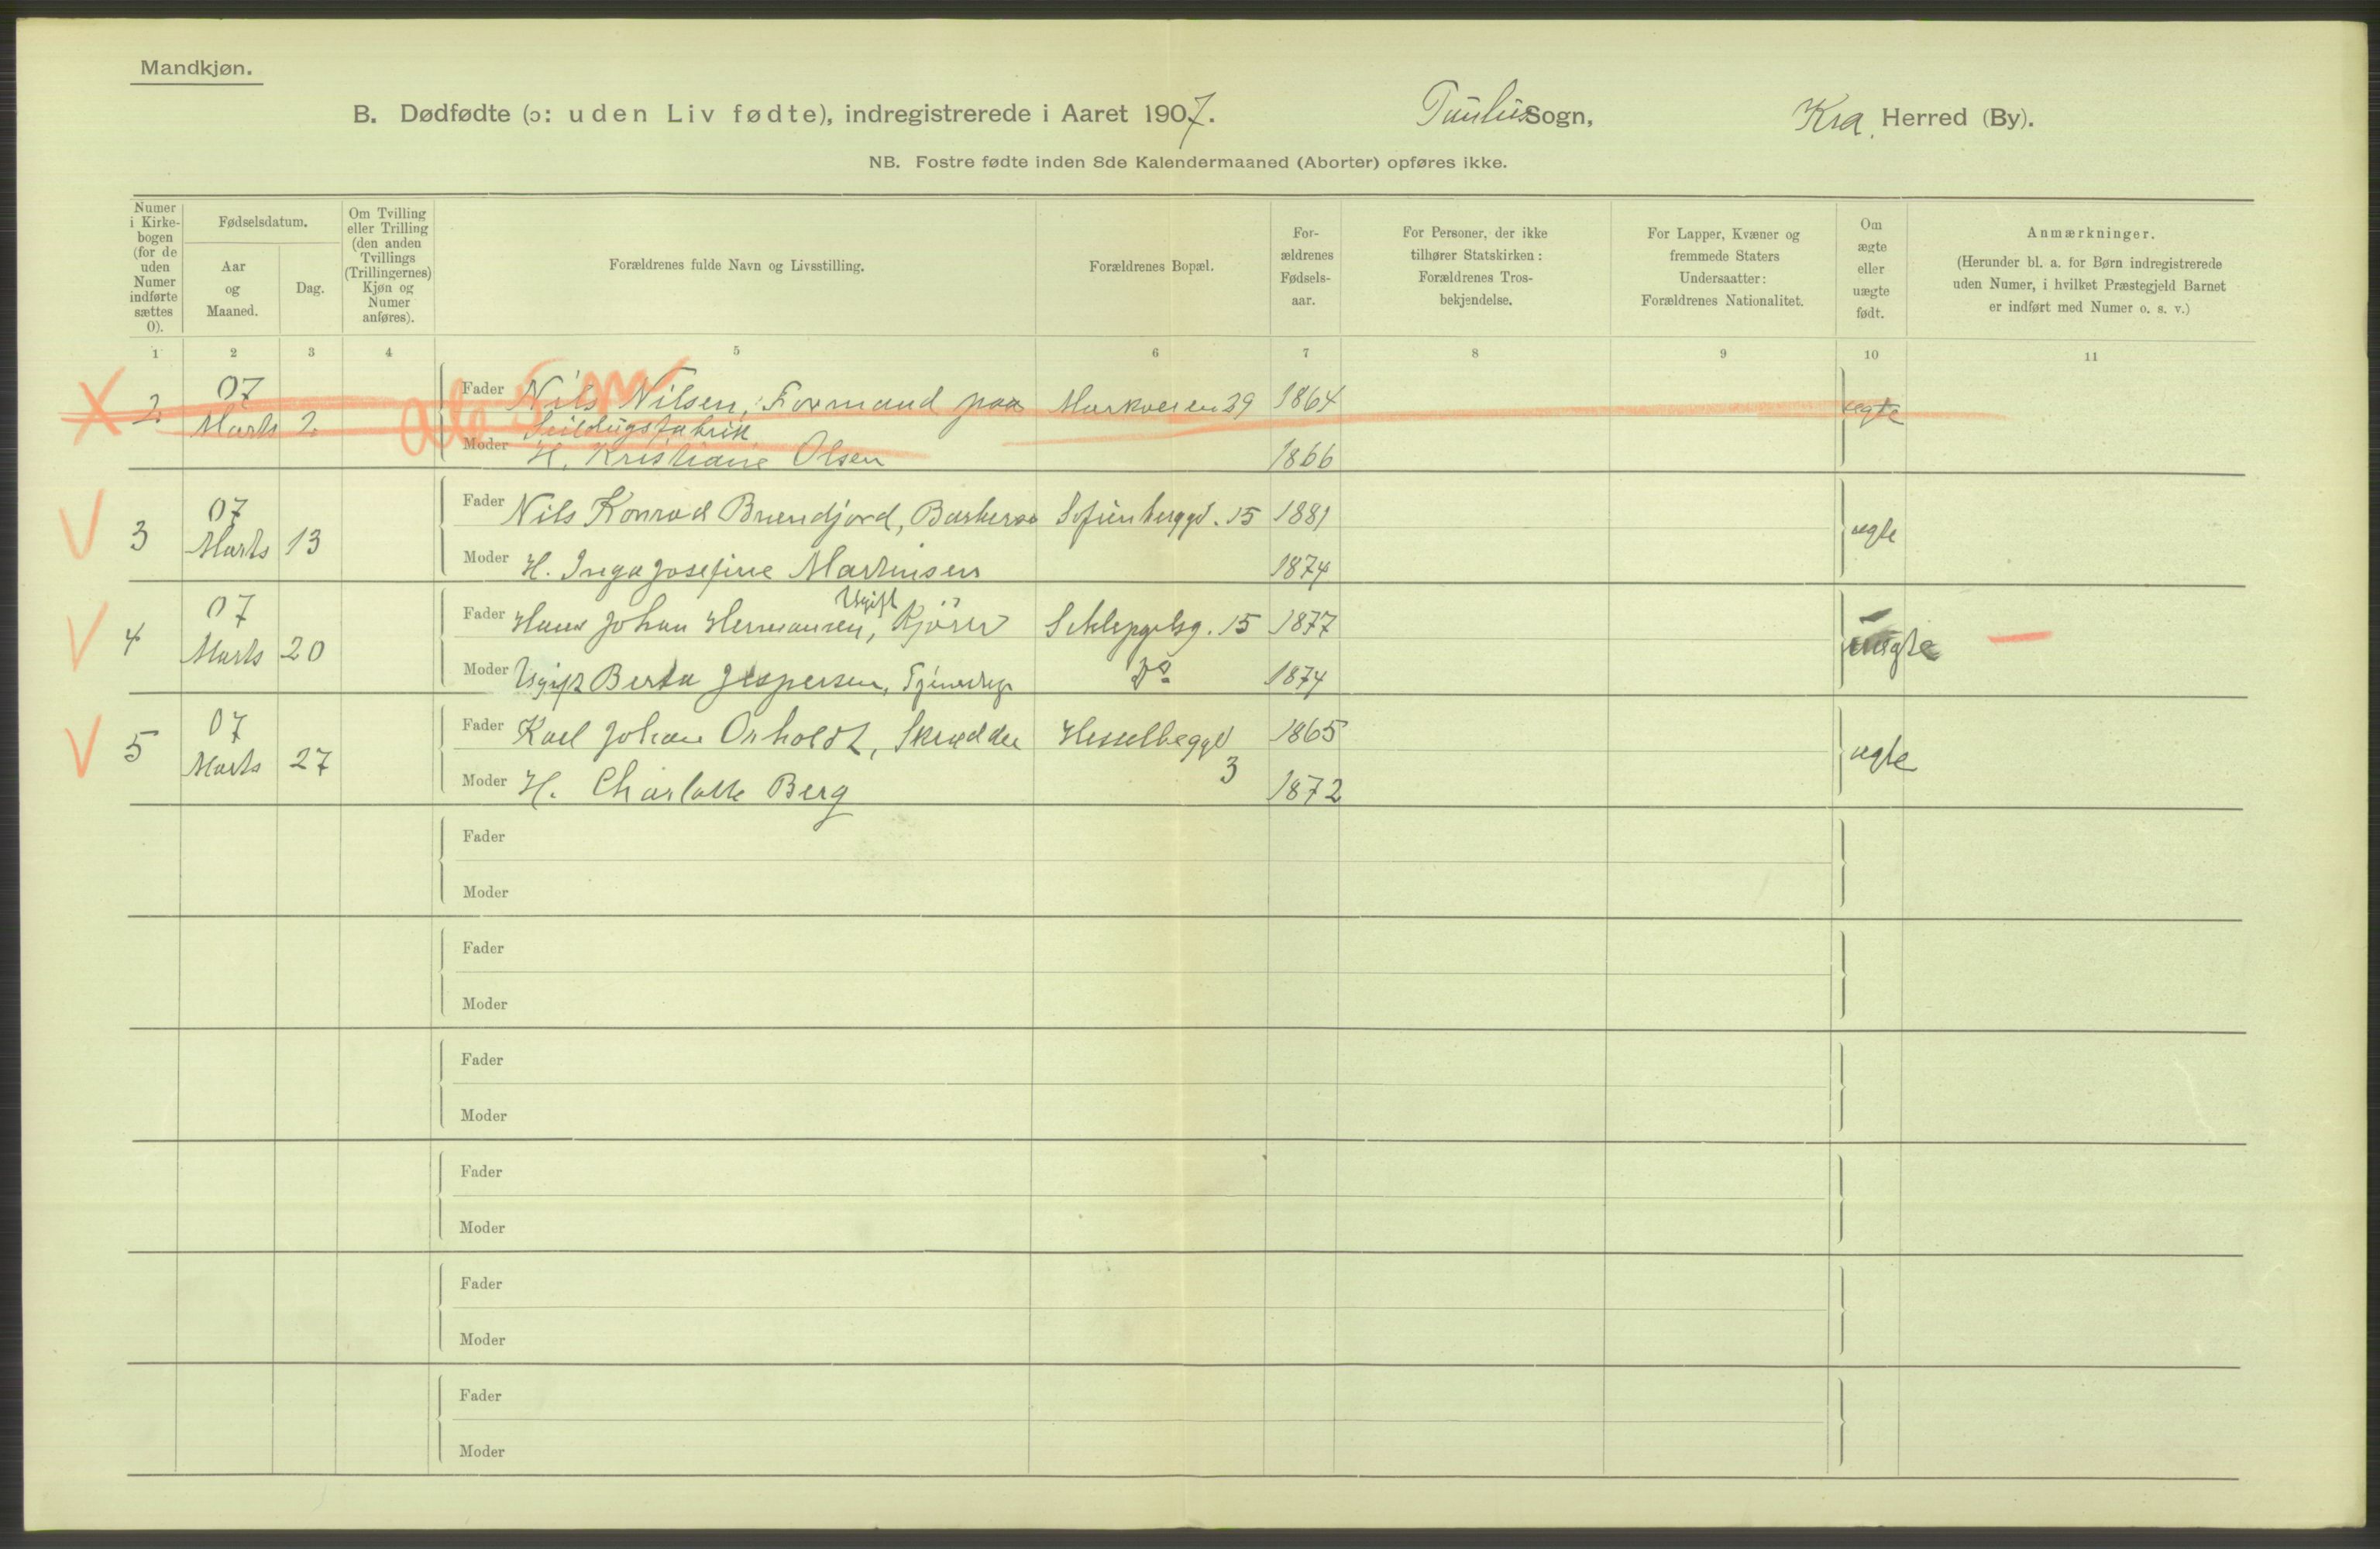 Mandkjøn.
B. Dødfødte (ɔ: uden Liv fødte), indregistrerede i Aaret 1907. Paulus Sogn, Kra. Herred (By).
NB. Fostre fødte inden 8de Kalendermaaned (Aborter) opføres ikke.
Numer i Kirke-bogen (for de uden Numer indførte sættes 0).
Fødselsdatum.
Aar og Maaned.
Dag.
Om Tvilling eller Trilling (den anden Tvillings (Trillingernes) Kjøn og Numer anføres).
Forældrenes fulde Navn og Livsstilling.
Forældrenes Bopæl.
For-ældrenes Fødsels-aar.
For Personer, der ikke tilhører Statskirken: Forældrenes Tros-bekjendelse.
For Lapper, Kvæner og fremmede Staters Undersaatter: Forældrenes Nationalitet.
Om ægte eller uægte født.
Anmærkninger. (Herunder bl. a. for Børn indregistrerede uden Numer, i hvilket Præstegjeld Barnet er indført med Numer o. s. v.)
1 2 3 4 5 6 7 8 9 10 11
2 07 Marts 2 Fader Nils Nilsen, Formand paa Seildugsfabrik Markveien 39 1864 ægte
Moder H. Kristiane Olsen 1866
3 07 Marts 13 Fader Nils Konrad Brendjord, Barber Sofienberggd. 15 1881 ægte
Moder H. Inga Josefine Martinsen 1874
4 07 Marts 20 Fader Hans Johan Hermansen, Ugift Kjører Schleppelsg. 15 1877 uægte
Moder Ugift Berta Jespersen, Do 1874
5 07 Marts 27 Fader Karl Johan Orholdt, Skrædder Hesselbeggd 3 1865 ægte
Moder H. Charlotte Berg 1872
Fader
Moder
Fader
Moder
Fader
Moder
Fader
Moder
Fader
Moder
Fader
Moder